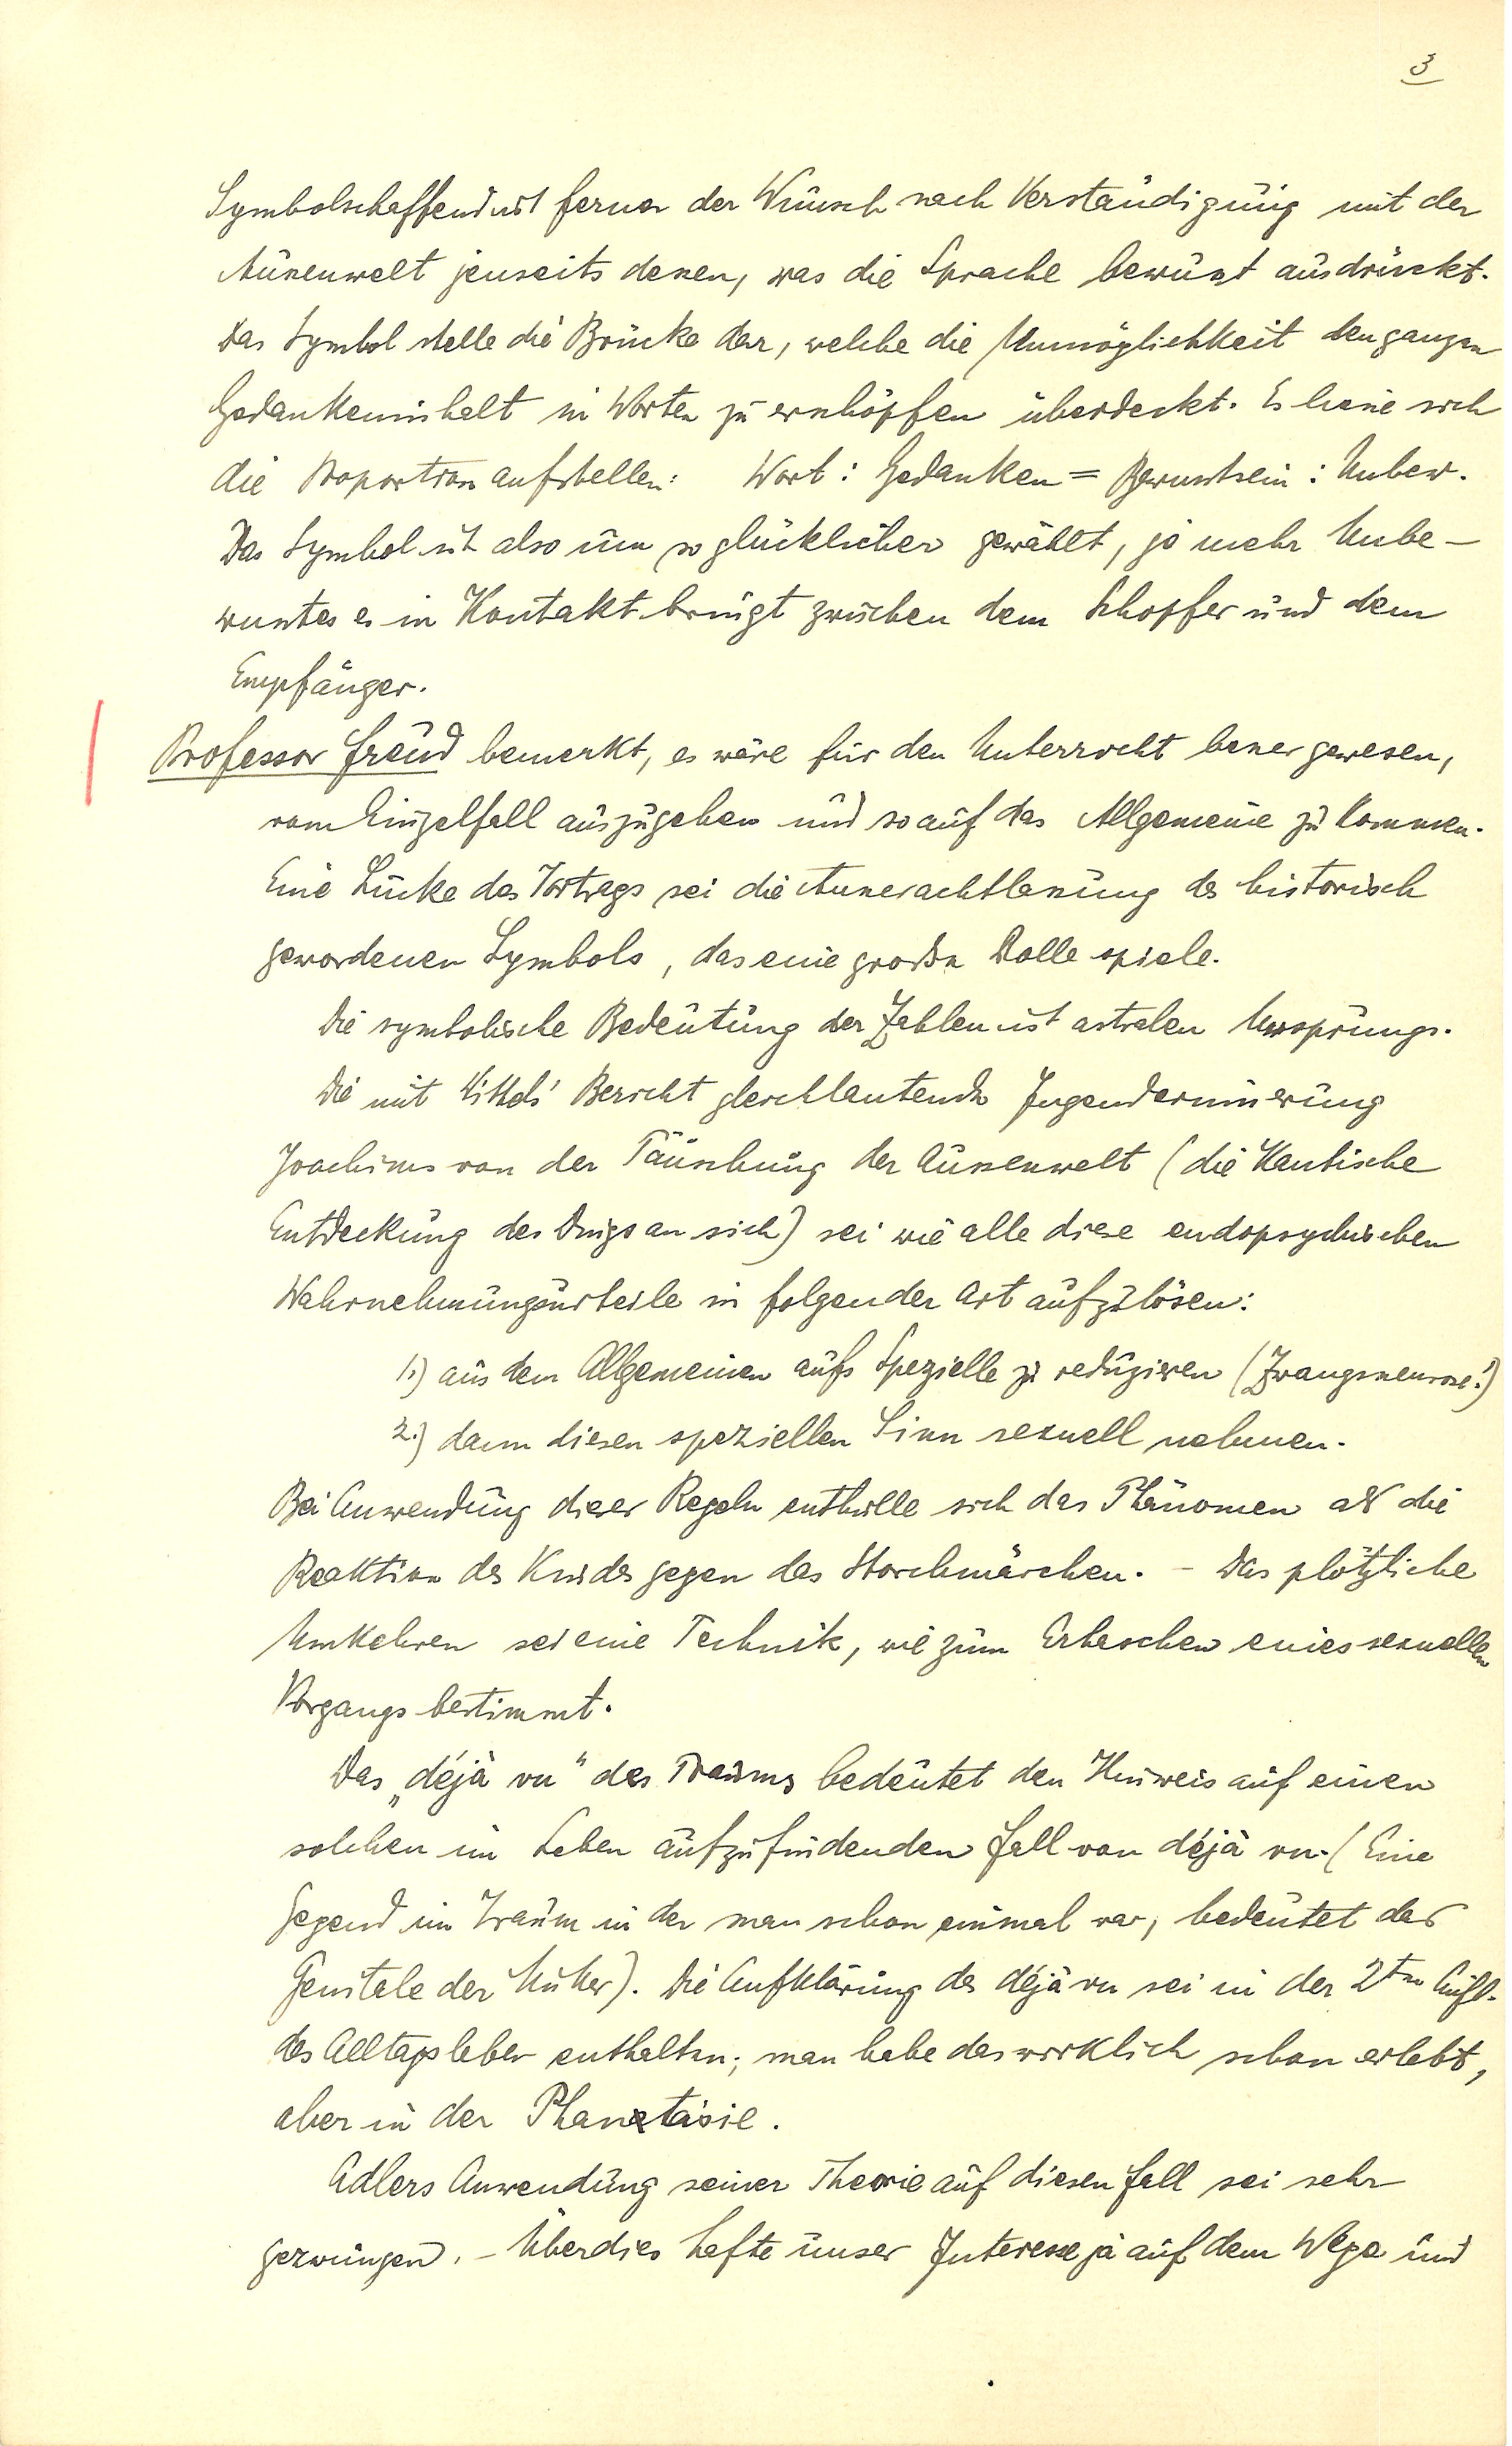 3
Symbolschaffend ist ferner der Wunsch nach Verständigung mit der
Aussenwelt jenseits dessen, was die Sprache bewusst ausdrückt.
Das Symbol stelle die Brücke dar, welche die Unmöglichkeit den ganzen
Gedankeninhalt in Worten zu erschöpfen überdeckt. Es liesse sich
die Proportion aufstellen: Wort : Gedanken = Bewusstsein : Unbew.
Das Symbol ist also um so glücklicher gewählt, je mehr Unbe-
wusstes es in Kontakt bringt zwischen dem Schöpfer und dem
Empfänger.
Professor Freud bemerkt, es wäre für den Unterricht besser gewesen,
vom Einzelfall auszugehen und so auf das Allgemeine zu kommen.
Eine Lücke des Vortrags sei die Ausserachtlassung des historisch
gewordenen Symbols, das eine große Rolle spiele.
Die symbolische Bedeutung der Zahlen ist astralen Ursprungs.
Die mit Wittels' Bericht gleichlautende Jugenderinnerung
Joachims von der Täuschung der Aussenwelt (die Kantische
Entdeckung des Dings an sich) sei wie alle diese endopsychischen
Wahrnehmungsurteile in folgender Art aufzulösen:
1.) aus dem Allgemeinen aufs Spezielle zu reduzieren (Zwangsneurose!)
2.) dann diesen speziellen Sinn sexuell nehmen.
Bei Anwendung dieser Regeln enthülle sich das Phänomen als die
Reaktion des Kindes gegen das Storchmärchen. - Das plötzliche
Umkehren sei eine Technik, wie zum Erhaschen eines sexuellen
Vorgangs bestimmt.
Das „déjà vu“ des Traums bedeutet den Hinweis auf einen
solchen im Leben aufzufindenden Fall von déjà vu. (Eine
Gegend im Traum in der man schon einmal war, bedeutet das
Genitale der Mutter). Die Aufklärung des déjà vu sei in der 2ten Aufl.
des Alltagsleben enthalten; man habe das wirklich schon erlebt,
aber in der Phantasie.
Adlers Anwendung seiner Theorie auf diesen Fall sei sehr
gezwungen. - Überdies hafte unser Interesse ja auf dem Wege und